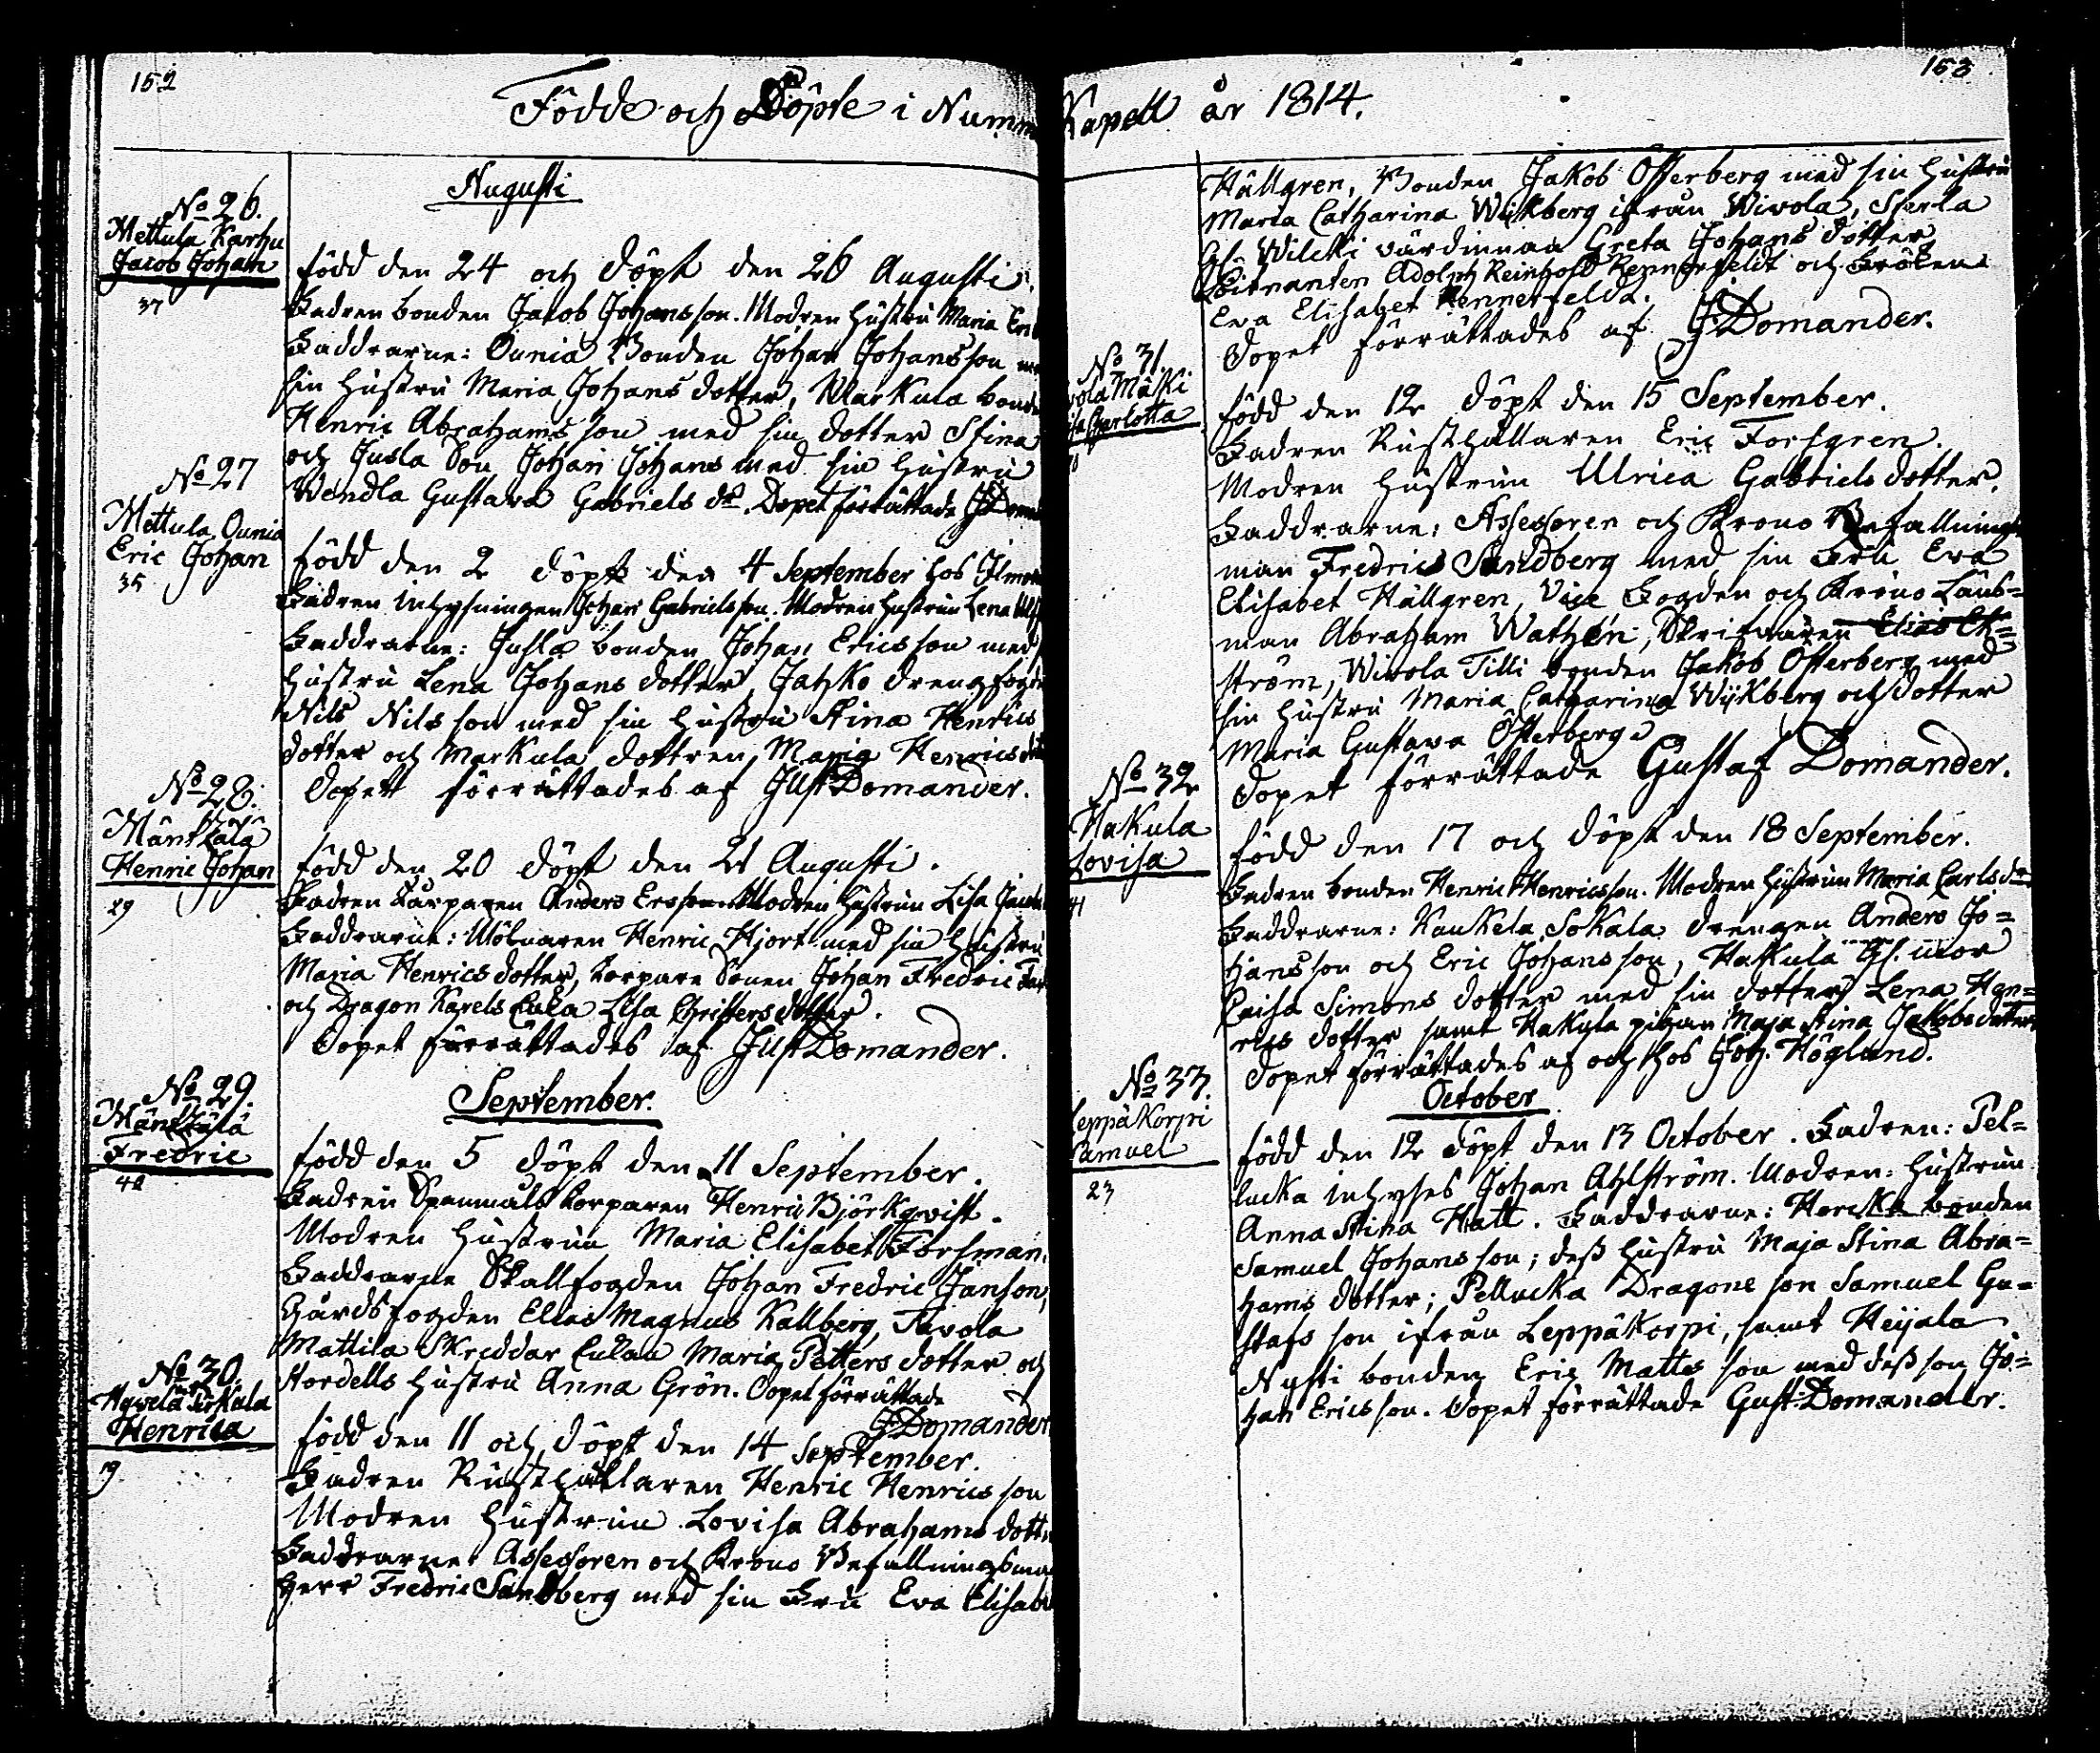 152
Födde och Döpte i Numm
Augusti
No 26.
Mettula Karhu
Jacob Johan
37
född den 24 och döpt den 26 Augusti.
Fadren bonden Jacob Johansson. Modren hustru Maria
Faddrarne: Ounia Bonden Johan Johansson
sin hustru Maria Johans dotter, Markula bonde
Henric Abrahams son med sin dotter Stina
och Jusla Son Johan Johans med sin hustru
Wendla Gustava Gabriels dr. Dopet förrättade
No 27
Mettula Ounia
Eric Johan
35
född den 2 döpt den 4 September hos
Fadren inhysningen Johan Gabrielsson. Modren hustrun Lena
Faddrarne: Jusla bonden Johan Ericsson med
hustru Lena Johans dotter, Jahko dreng
Nils Nilsson med sin hustru Stina Henrics
dotter och Markula dottren Maria Henrics
Dopet förrättades af Gust Domander.
No 28.
Mäntzälä
Henric Johan
29
född den 20 döpt den 21 Augusti.
Fadren Torparen Anders Ersson Modren hustrun Lisa
Faddrarne: Mölnaren Henric Hjort med sin hustru
Maria Henrics dotter, torpare Sonen Johan Fredric
och Dragon Karels Enka Lisa Christers dotter.
Dopet förrättades af Gust Domander.
September.
No 29.
Fredric
42
född den 5 döpt den 11 September.
Fadren Spanmåls torparen Henric Björkqvist.
Modren hustrun Maria Elisabet Forsman.
Faddrarne Skallfogden Johan Fredric Janson,
Gårdsfogden Elias Magnus Kallberg, Tavola
Mattila Skreddar Enkan Maria Petters dotter och
Hordells hustru Anna Grön. Dopet förrättade
G. Domander
No 30.
Hyvelä
Henrica
19
född den 11 och döpt den 14 September.
Fadren Rusthållaren Henric Henricsson
Modren hustrun Lovisa Abrahams dott
Faddrarne Assessoren och Krono Befallningsma
herr Fredric Sandberg med sin Fru Eva Elisabe
153
Kapell år 1814.
Hällgren, Bonden Jakob Österberg med sin hustru
Maria Catharina Wijkberg ifrån Wivola, Sierla
Gl. Wilcki värdinnan Greta Johans dotter
Löitnanten Adolph Reinhold Rennerfeldt och Fröken
Eva Elisabet Rennerfeldt.
Dopet förrättades af G. Domander.
No 31.
vola Mäki
Charlotta
född den 12 döpt den 15 September.
Fadren Rusthållaren Eric Forsgren.
Modren hustrun Ulrica Gabriels dotter.
Faddrarne: Assessoren och Krono Befallnings
man Fredric Sandberg med sin Fru Eva
Elisabet Hällgren, Vice Fogden och Krono Läns=
man Abraham Wathén, Skrifvaren Elias Ek=
ström, Wivola Tilli bonden Jakob Österberg med
sin hustru Maria Catharina Wijkberg och dotter
Maria Gustava Österberg
Dopet förrättade Gustaf Domander.
No 32
Hakula
Lovisa
41
född den 17 och döpt den 18 September.
Fadren bonden Henric Henricsson. Modren hustrun Maria Carlsdr
Faddrarne: Kaukela Sokala drengen Anders Jo=
hansson och Eric Johansson, Hakula Gl. mor
Caisa Simons dotter med sin dotter Lena Hen=
rics dotter samt Hakula pigan Maja Stina Jakobsdotter
Dopet förrättades af och hos Joh. Höglund.
October
No 33.
Leppäkorpi
Samuel
23
född den 12 döpt den 13 October. Fadren: Pel=
lucka inhyses Johan Ahlström. Modren: hustrun
Anna Stina Hatt. Faddrarne: Horcka bonden
Samuel Johansson; dess hustru Maja Stina Abra=
hams dotter; Pellucka Dragone son Samuel Gu=
stafs son ifrån Leppäkorpi, samt Heijala
Nysti bonden Eric Matts son med dess son Jo=
han Ericsson. Dopet förrättade Gust. Domander.